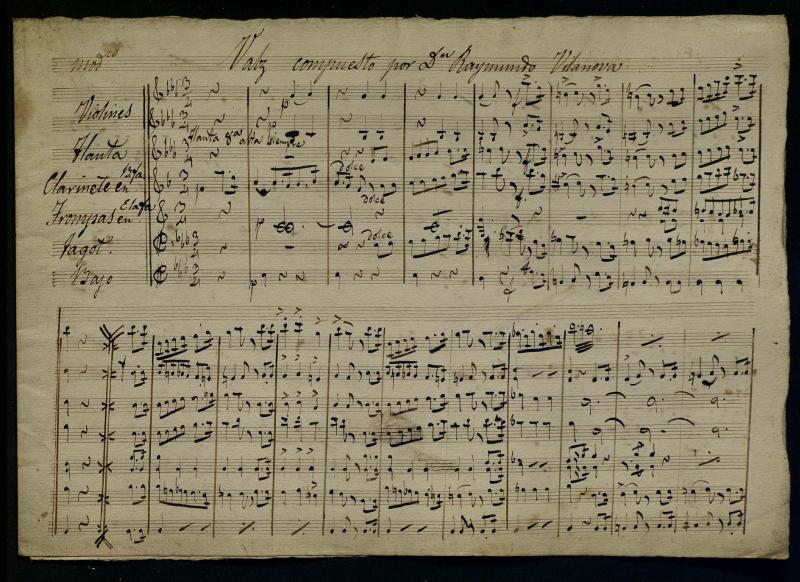 mod.to Valz compuesto por Dn Raymundo Vilanova
Violines
Flauta 8a alta siempre
Flauta
Clarinete en Bfa
dolce
Trompas en Elafa
dolce
p
dolce
Fagot.
Bajo
p